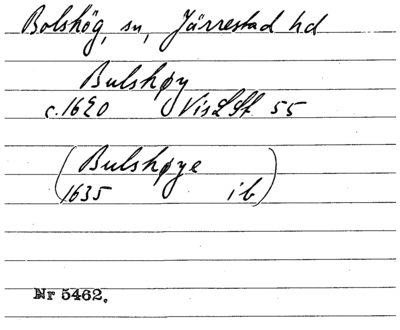 Bolshög, sn, Järrestad hd
Bulshøy
c.1620 VisLSt 55
(Bulshøye
1635 ib)
Nr 5462.